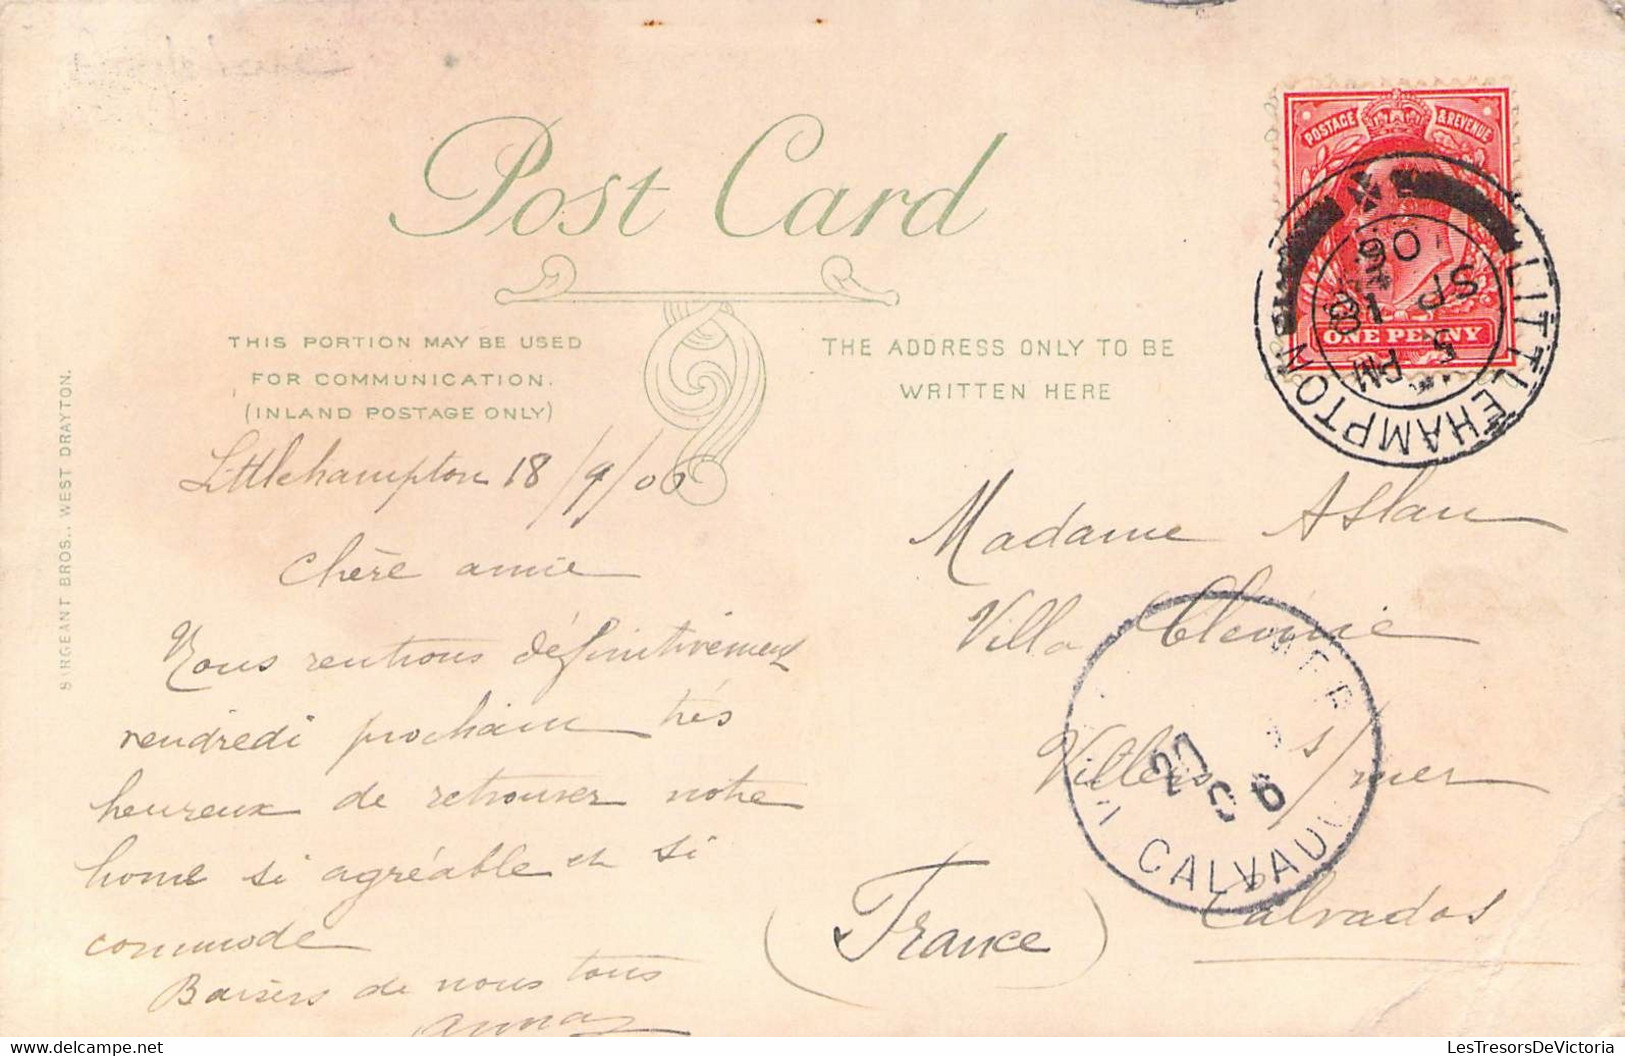 Post Card
THIS PORTION MAY BE USED
FOR COMMUNICATION.
(INLAND POSTAGE ONLY)
THE ADDRESS ONLY TO BE
WRITTEN HERE
SIRGEANT BROS., WEST DRAYTON.
POSTAGE & REVENUE
ONE PENNY
LITTLEHAMPTON
5 PM
SP 18
06
Littlehampton 18/9/06
Chère amie
Nous rentrons définitivement
vendredi prochain très
heureux de retrouver notre
home si agréable et si
commode
Baisers de nous tous
Anna
Madame Aslan
Villa Clémie
Villers s/mer
Calvados
(France)
20
06
CALVADO
LesTresorsDeVictoria.com